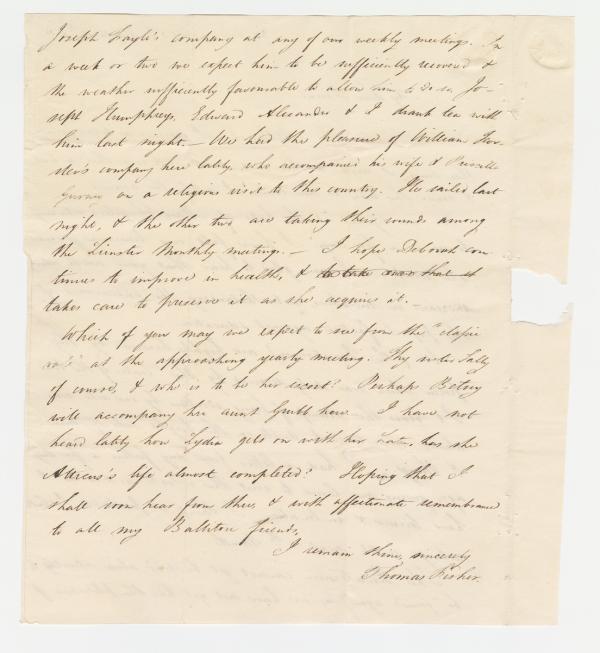 Joseph Gayli's company at any of our weekly meetings. In
a week or two we expect him to be sufficiently recovered &
the weather sufficiently favourable to allow him to do so. Jo-
seph Humphreys, Edward Alexander & I drank tea with
him last night. — We had the pleasure of William For-
ster's company here lately, who accompanied his wife & Priscilla
Gurney on a religious visit to this country. He sailed last
night, & the other two are taking their rounds among
the Leinster Monthly meetings. — I hope Deborah con
tinues to improve in health, & to take care that it
takes care to preserve it as she acquires it.
Which of you may we expect to see from the "classic
at the approaching yearly meeting. Thy sister Sally
of course, & who is to be her escort? Perhaps Betsey
will accompany her aunt Grubb here I have not
heard lately how Lydia gets on with her Latin, has she
Atticus's life almost completed? Hoping that I
shall soon hear from thee, & with affectionate remembrance
to all my Ballitore friends,
I remain thine, sincerely
Thomas Fisher.